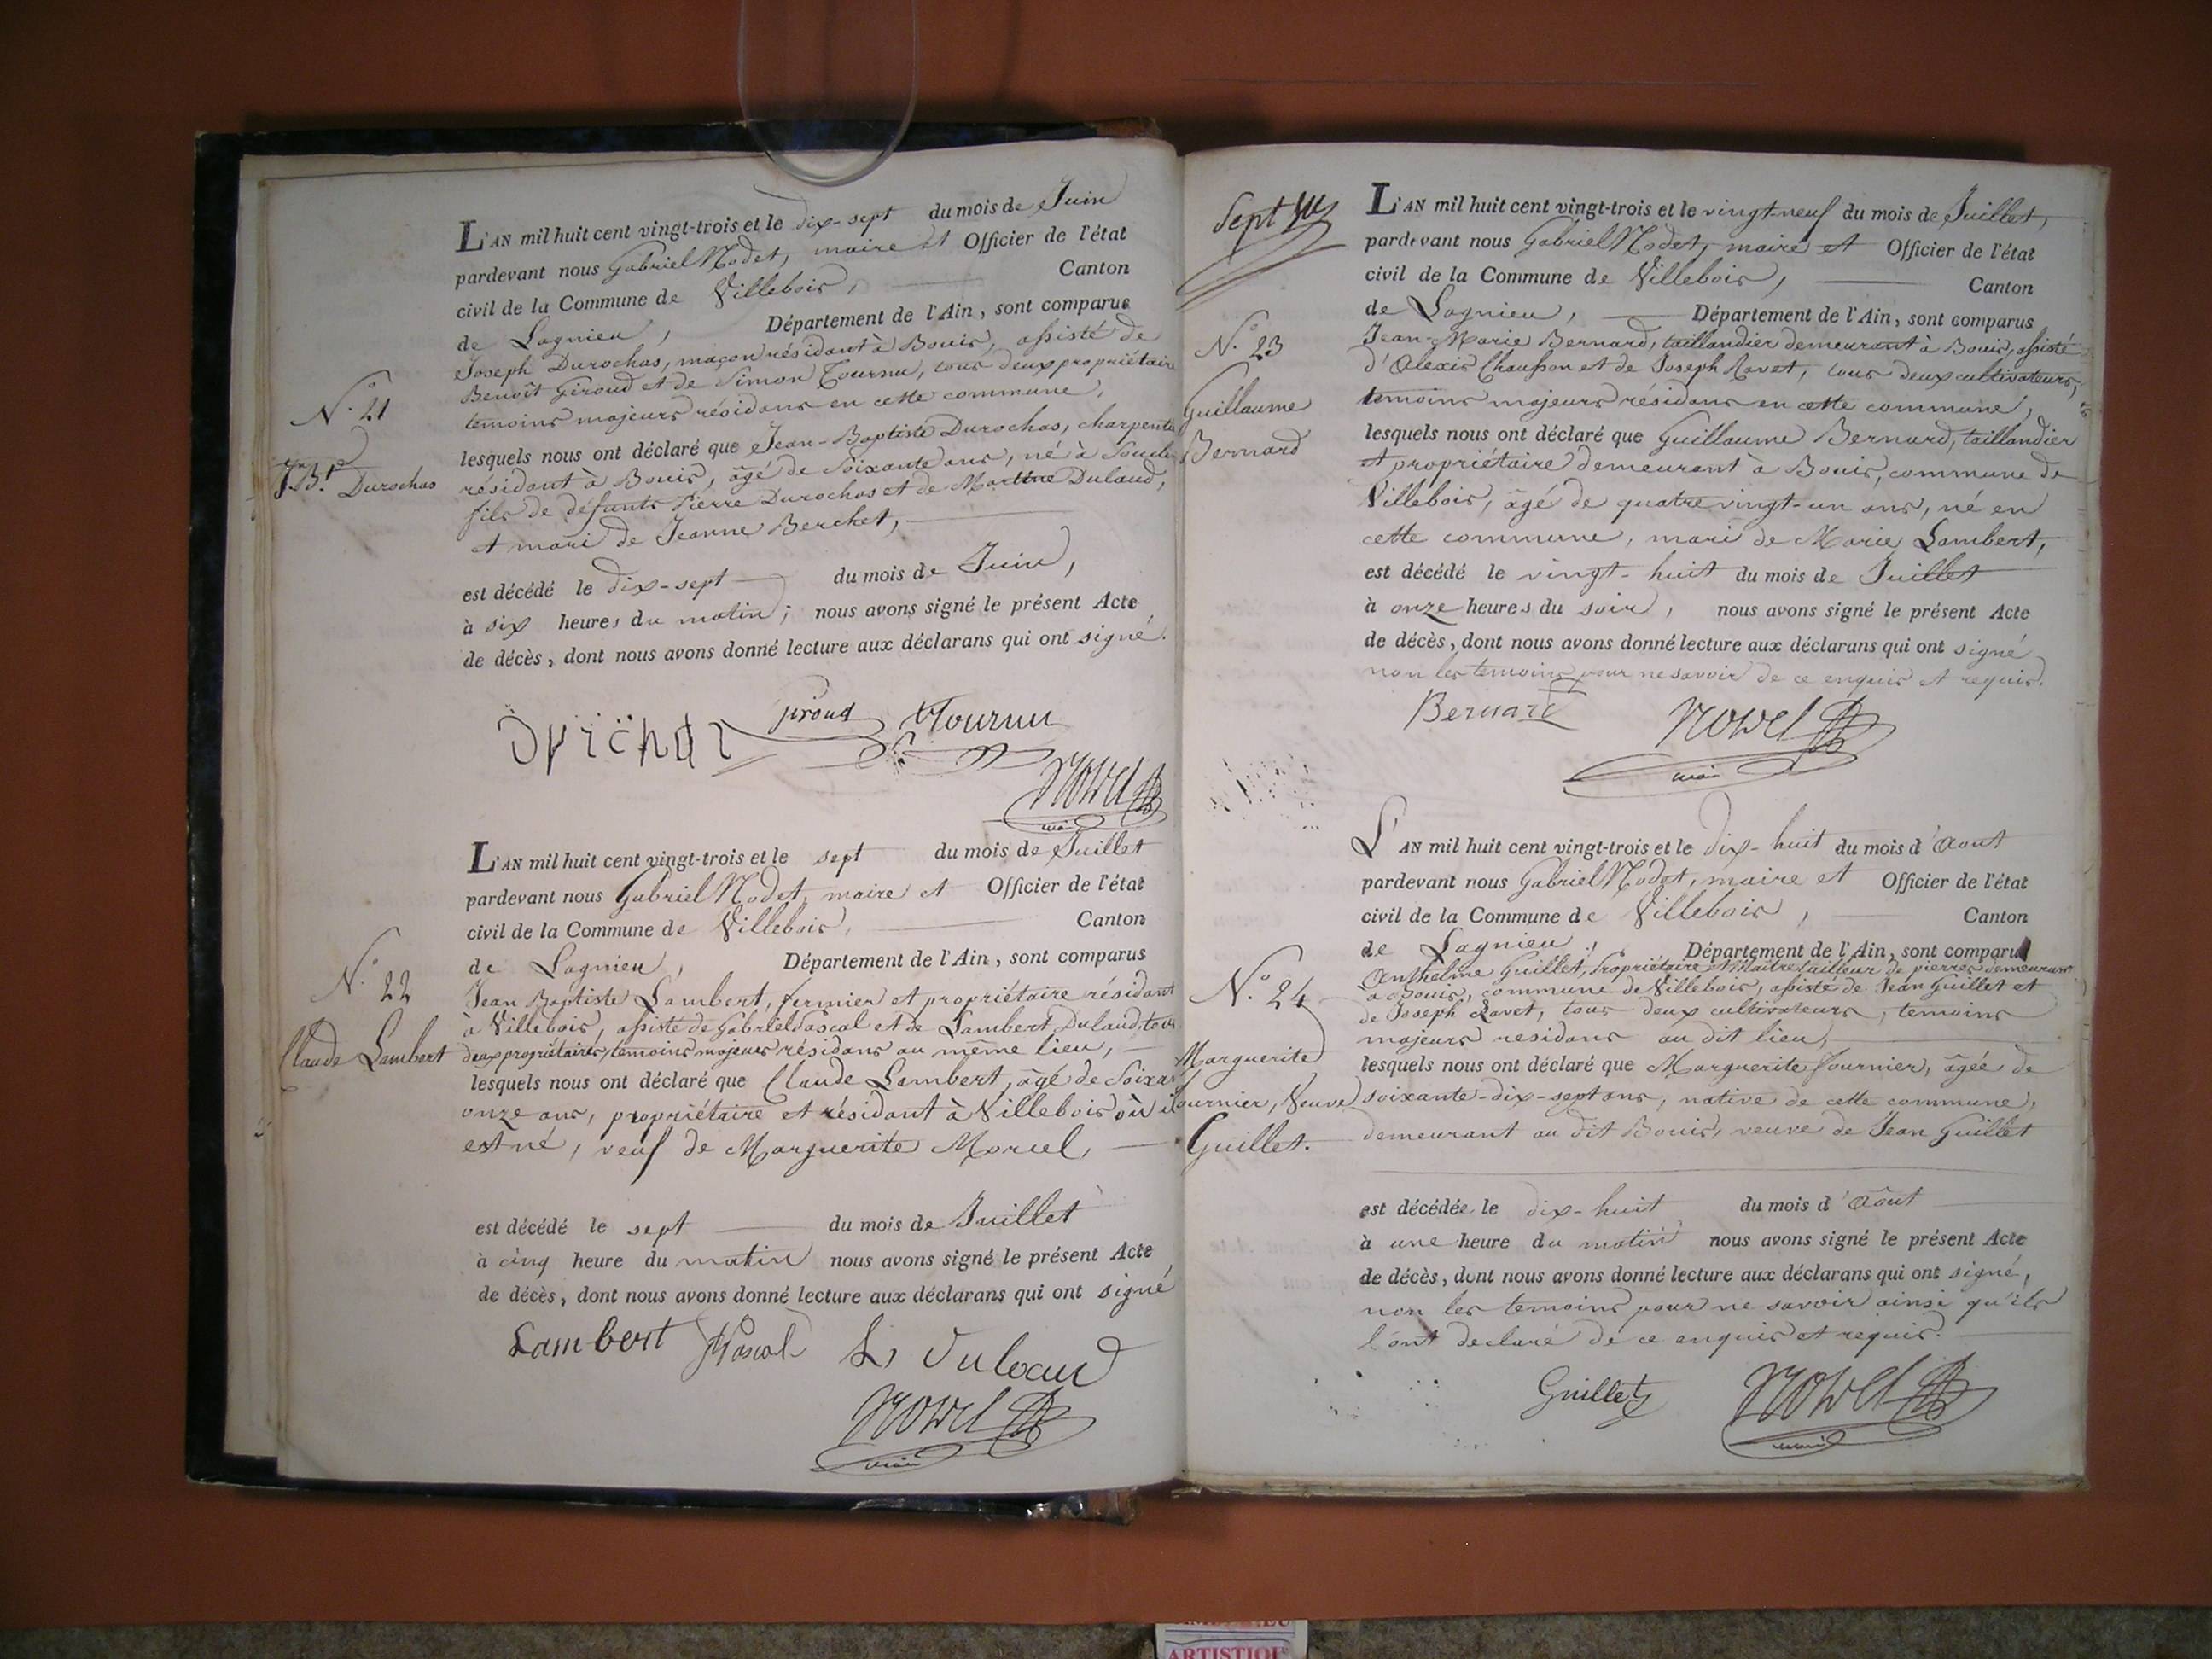 L'AN mil huit cent vingt-trois et le dix-sept du mois de Juin
pardevant nous Gabriel Nodet, maire et Officier de l'état
civil de la Commune de Villebois, Canton
de Lagnieu, Département de l'Ain, sont comparus
Joseph Durochas, maçon résidant à Bouis, assisté de
Benoît Giroud et de Simon Tournu, tous deux propriétaire
temoins majeurs résidans en cette commune,
N.o 21
Jn Bte Durochas
lesquels nous ont déclaré que Jean-Baptiste Durochas, charpentie
résidant à Bouis, âgé de Soixante ans, né à
fils de défunts Pierre Durochas et de Dulaud,
et mari de Jeanne Berchet,
est décédé le dix-sept du mois de Juin,
à six heures du matin; nous avons signé le présent Acte
de décès, dont nous avons donné lecture aux déclarans qui ont signé.
giroud Tournu
Nodet
maire
L'AN mil huit cent vingt-trois et le sept du mois de Juillet
pardevant nous Gabriel Nodet, maire et Officier de l'état
civil de la Commune de Villebois, Canton
de Lagnieu, Département de l'Ain, sont comparus
N.o 22
Claude Lambert
Jean Baptiste Lambert, fermier et propriétaire résidant
à Villebois, assisté de Gabriel Pascal et de Lambert Dulaud, tous
deux propriétaires, temoins majeurs résidans au même lieu,
lesquels nous ont déclaré que Claude Lambert, âgé de Soixa
onze ans, propriétaire et résidant à Villebois où il
est né, veuf de Marguerite Morcel,
est décédé le sept du mois de Juillet
à cinq heure du matin nous avons signé le présent Acte
de décès, dont nous avons donné lecture aux déclarans qui ont signé
Lambert Pascal L Dulaud
Nodet
maire
Sept
L'AN mil huit cent vingt-trois et le vingt-neuf du mois de Juillet,
pardevant nous Gabriel Nodet, maire et Officier de l'état
civil de la Commune de Villebois, Canton
de Lagnieu, Département de l'Ain, sont comparus
N.o 23
Guillaume
Bernard
Jean-Marie Bernard, taillandier demeurant à Bouis, assisté
d'Alexis Chausson et de Joseph Ravet, tous deux cultivateurs,
temoins majeurs résidans en cette commune,
lesquels nous ont déclaré que Guillaume Bernard, taillandier
et propriétaire demeurant à Bouis, commune de
Villebois, âgé de quatre vingt-un ans, né en
cette commune, mari de Marie Lambert,
est décédé le vingt-huit du mois de Juillet
à onze heures du soir, nous avons signé le présent Acte
de décès, dont nous avons donné lecture aux déclarans qui ont signé
non les temoins pour ne savoir de ce enquis et requis.
Bernard Nodet
maire
L'AN mil huit cent vingt-trois et le dix-huit du mois d'Aout
pardevant nous Gabriel Nodet, maire et Officier de l'état
civil de la Commune de Villebois, Canton
de Lagnieu, Département de l'Ain, sont comparus
N.o 24
Marguerite
fournier, Veuve
Guillet.
Anthelme Guillet, Propriétaire et Maître tailleur de pierres demeurant
à Bouis, commune de Villebois, assisté de Jean Guillet et
de Joseph Ravet, tous deux cultivateurs, temoins
majeurs residans au dit lieu,
lesquels nous ont déclaré que Marguerite fournier, âgée de
soixante-dix-sept ans, native de cette commune,
demeurant au dit Bouis, veuve de Jean Guillet
est décédée le dix-huit du mois d'Août
à une heure du matin nous avons signé le présent Acte
de décès, dont nous avons donné lecture aux déclarans qui ont signé,
non les temoins pour ne savoir ainsi qu'ils
l'ont declaré de ce enquis et requis.
Guillet Nodet
maire
ARTISTIQUE